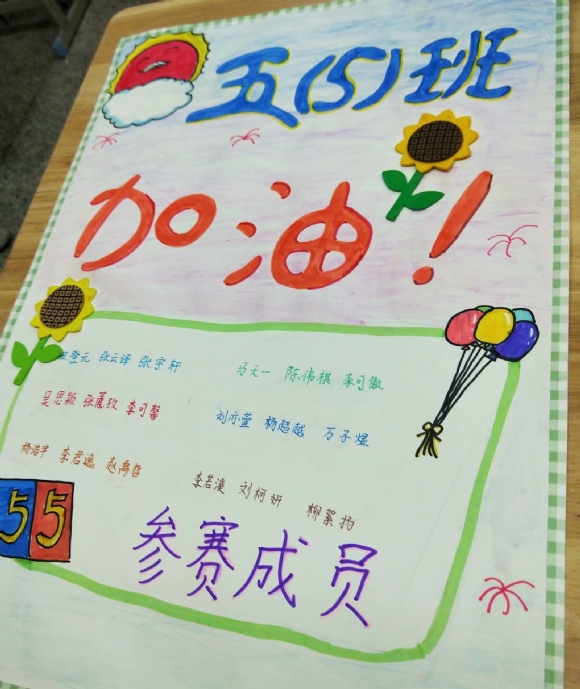 五(5)班
加油!
王登元 张云译 张宇轩 马天一 陈伟祺 李可傲
吴思颖 张蕙孜 李可馨 刘亦萱 杨超越 万子煜
杨浩宇 李君逸 赵禹哲 李若溪 刘柯妍 柳絮扬
55
参赛成员